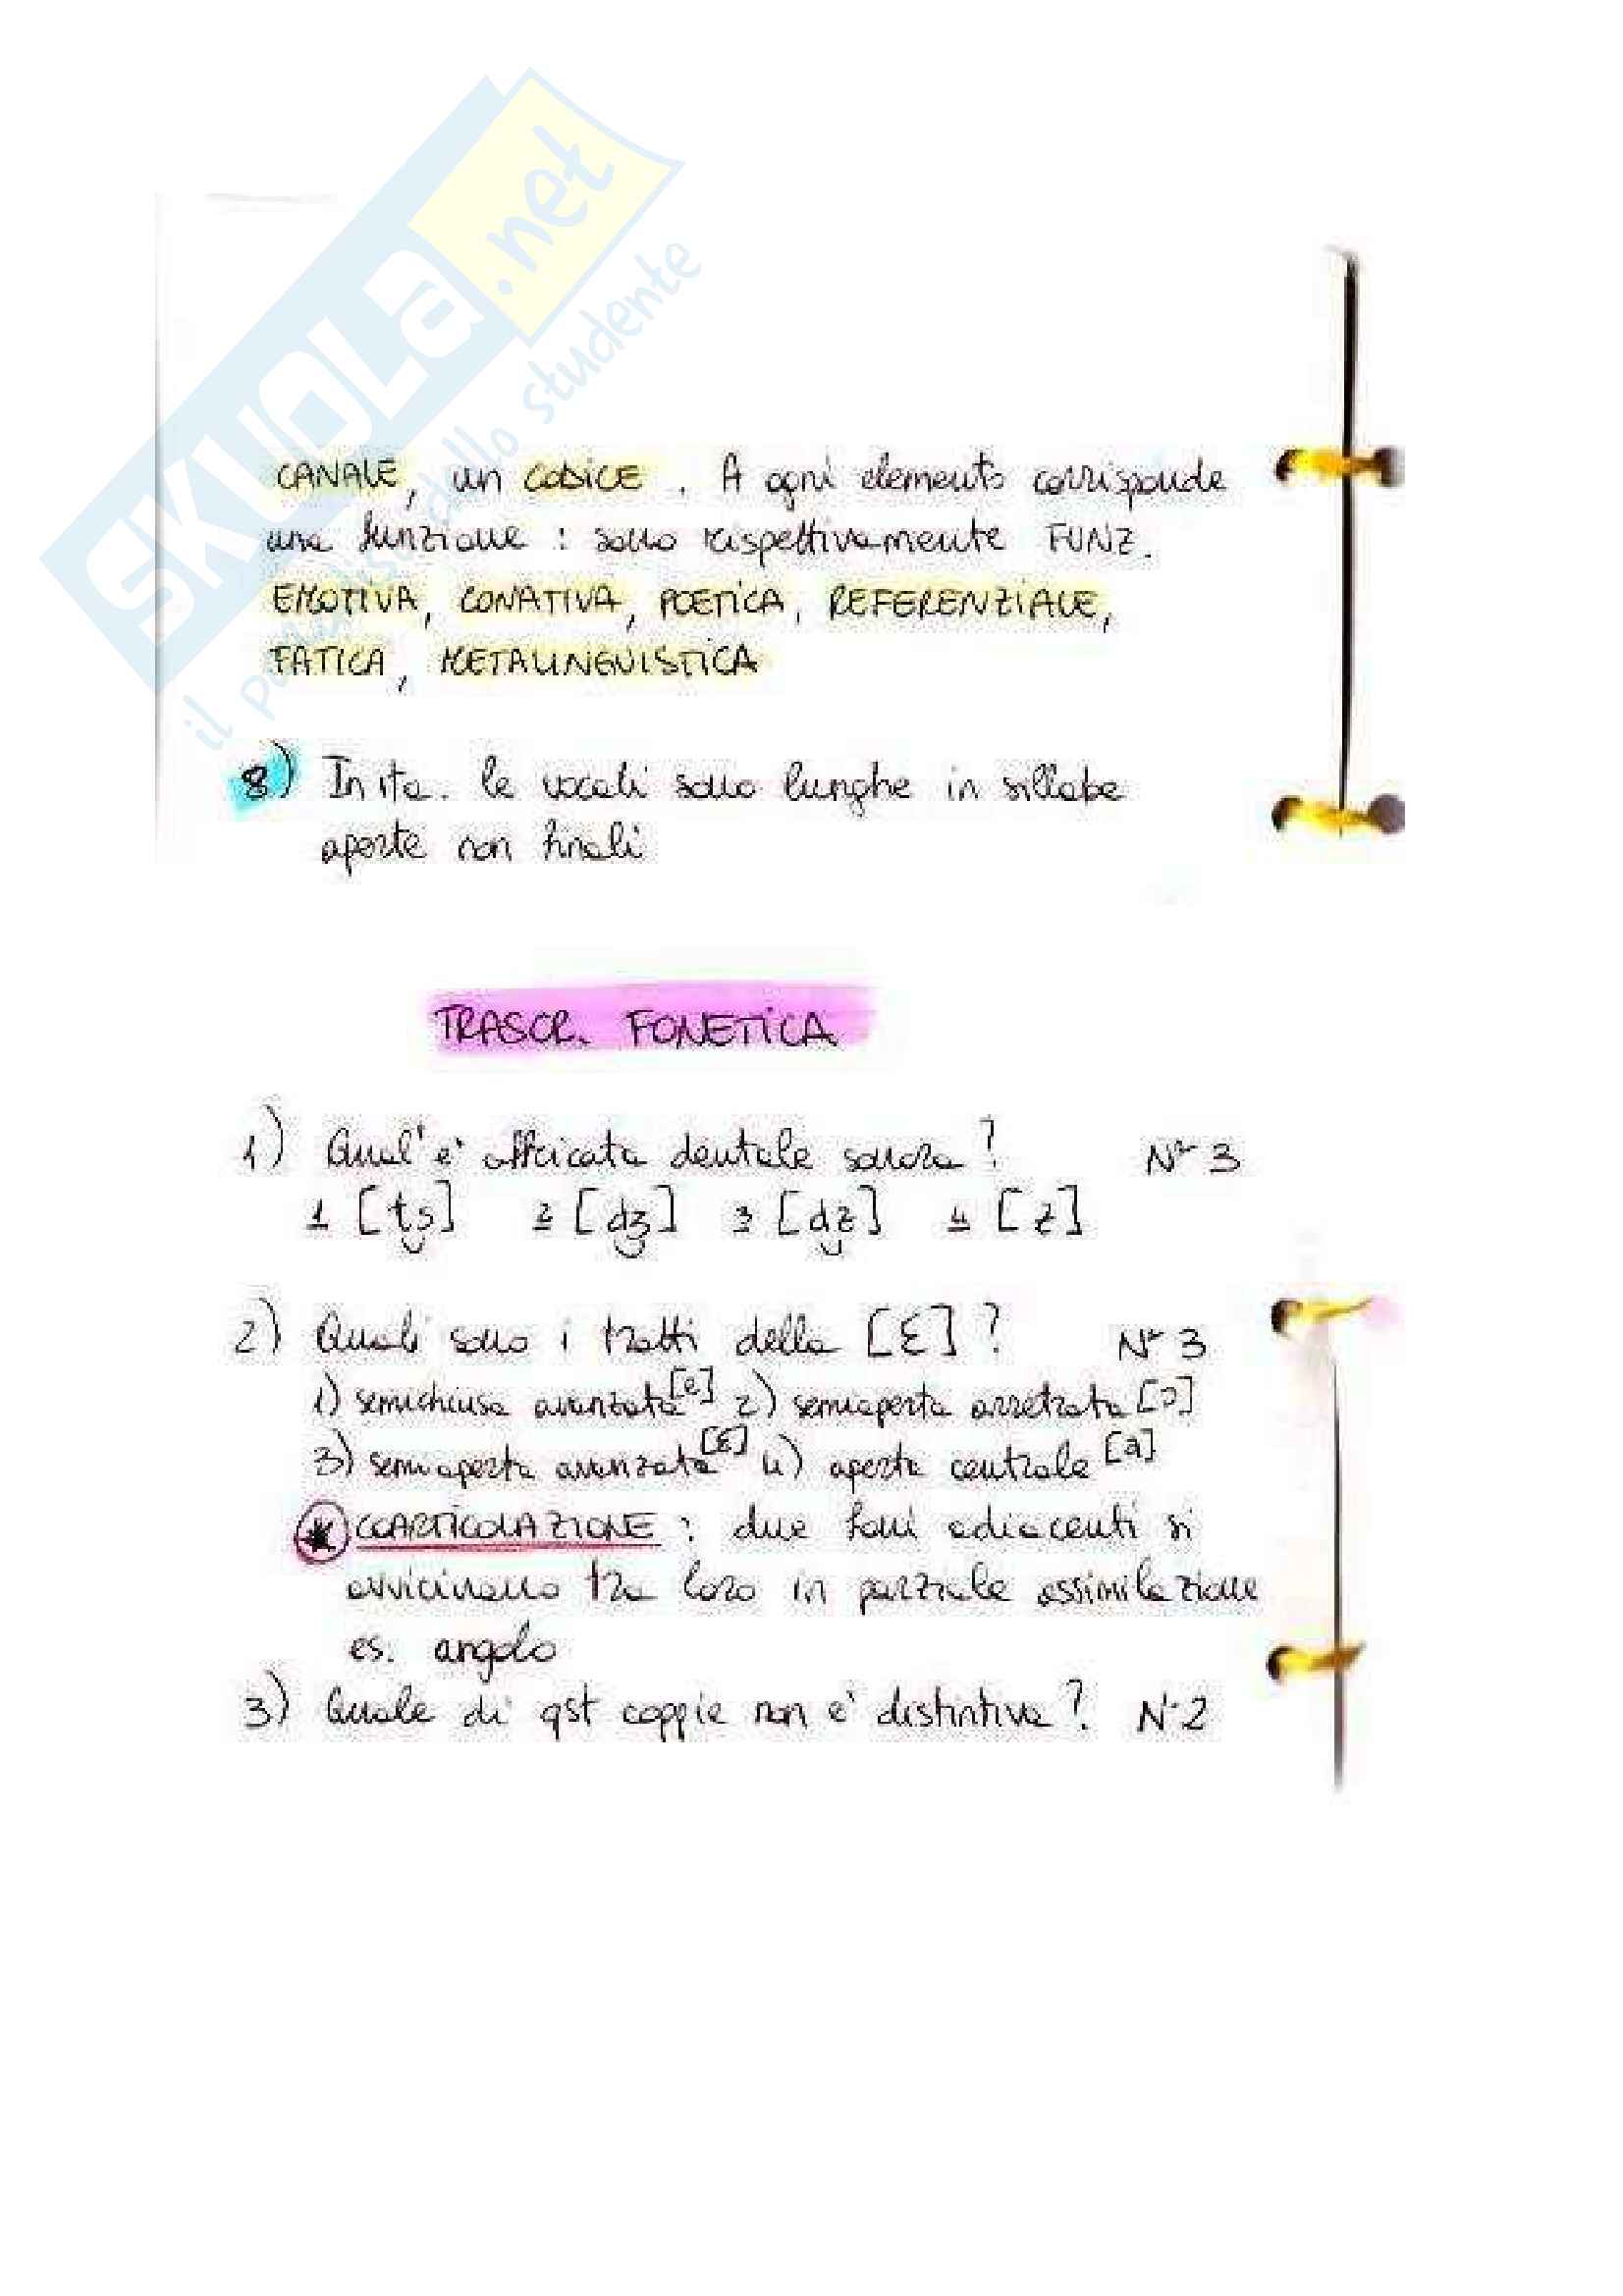 SKUOLA.net
il paradiso dello studente
CANALE, un CODICE. A ogni elemento corrisponde
una funzione : sono rispettivamente FUNZ.
EMOTIVA, CONATIVA, POETICA, REFERENZIALE,
FATICA, METALINGUISTICA
8) In ita. le vocali sono lunghe in sillabe
aperte non finali
TRASCR. FONETICA
1) Qual'è affricata dentale sonora? N° 3
1 [t͜s] 2 [d͜ʒ] 3 [d͜z] 4 [z]
2) Quali sono i tratti della [ɛ]? N° 3
1) semichiusa avanzata [e] 2) semiaperta arretrata [ɔ]
3) semiaperta avanzata [ɛ] 4) aperta centrale [a]
★ COARTICOLAZIONE : due foni adiacenti si
avvicinano tra loro in parziale assimilazione
es. angolo
3) Quale di qst coppie non è distintiva? N° 2